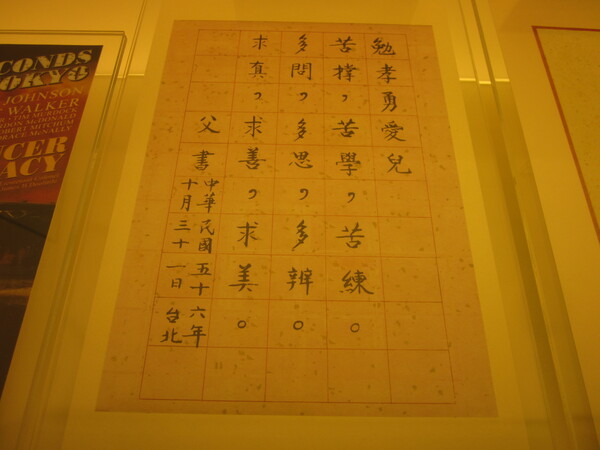 勉孝勇愛兒
苦撑，苦學，苦練。
多問，多思，多辨。
求真，求善，求美。
父書
中華民國五十六年
十月三十一日台北
CONDS
OKYO
JOHNSON
WALKER
UCER
ACY